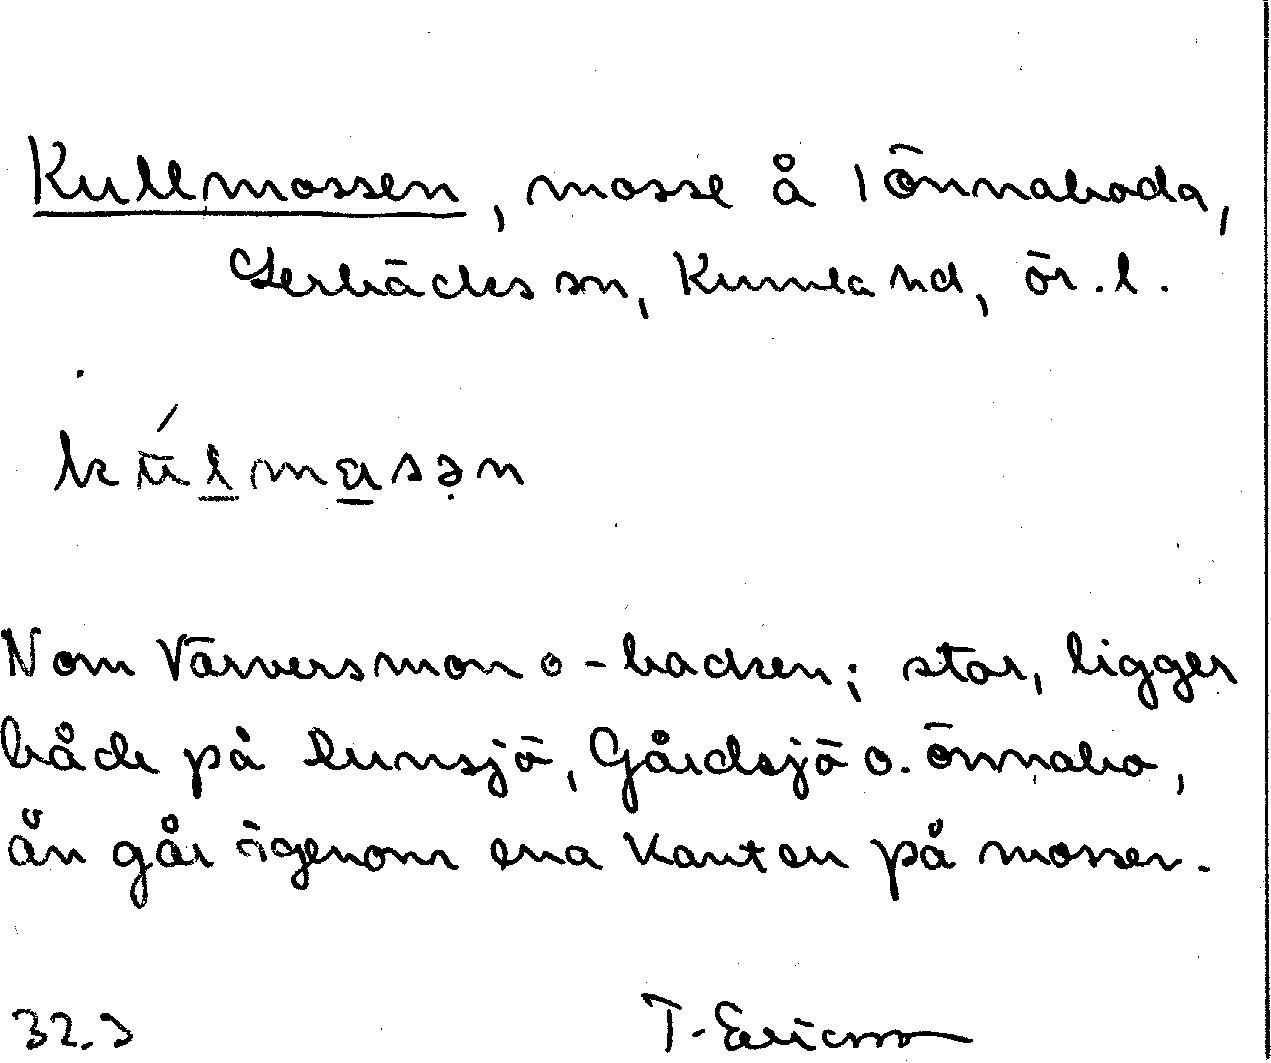 Kullmossen, mosse å 1 Önnaboda,
Lerbäcks sn, Kumla hd, Ör. l.
kúlmasən
Nom Värversmon o -backen; stor, ligger
både på Runsjö, Gårdsjö o. Önnabo,
ån går igenom ena kanten på mossen.
32.
T. Ericsson